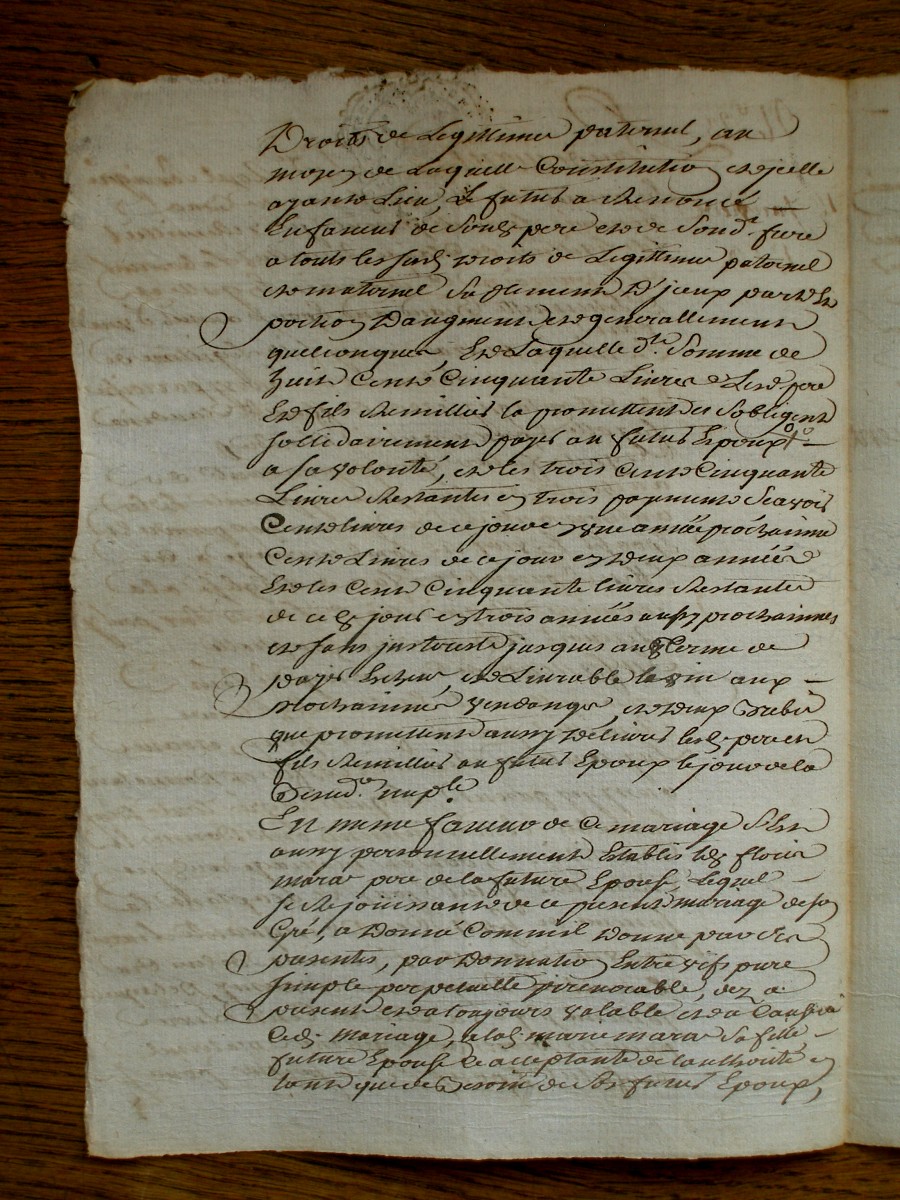 Droits de Legittime paternel, au
moyen de Laquelle Constitution et jcelle
ayant Lieu, Le futur a Renoncé
En faveur de Sond pere et de Sond. frere
a touts lesusd. droits de Legittime paternel
et maternel Suplement D'jceux part et
portion D'augment et generallement
quelconques, Et de Laquelle de. Somme de
huit Cents Cinquante Livres Lesd. pere
Et fils Remillier la promettent et Sobligent
sollidairement payer au futur Epoux
a sa volonté, et les trois Cents Cinquante
Livres Restantes en trois payements Scavoir
Cent livres de ce jour en une année prochaine
Cent Livres de ce jour en deux années
Et les Cent Cinquante livres Restantes
de ce jour en trois années aussy prochaines
et sans jnterest jusques au terme de
payer Echeu, et Livrable le vin aux
prochaines Vendanges, et deux
que promettent aussy delivrer lesd pere et
fils Remillier au futur Epoux le jour de la
Bened. nuple
En meme faveur de Ce mariage S'est
aussy personnellement Establis led floris
mara pere de la future Epouse, Lequel
se Rejouissant de ce present mariage de son
Gré, a Donné Comme il Donne par ces
presentes, par Donnation Entre vifs pure
simple perpetuelle jrrevocable, dez a
present et a toujours valable et a Cause de
Cedt mariage, a lad. marie mara Sa fille
future Epouse acceptante de l'authorité en
tant que de Besoin de Son futur Epoux,